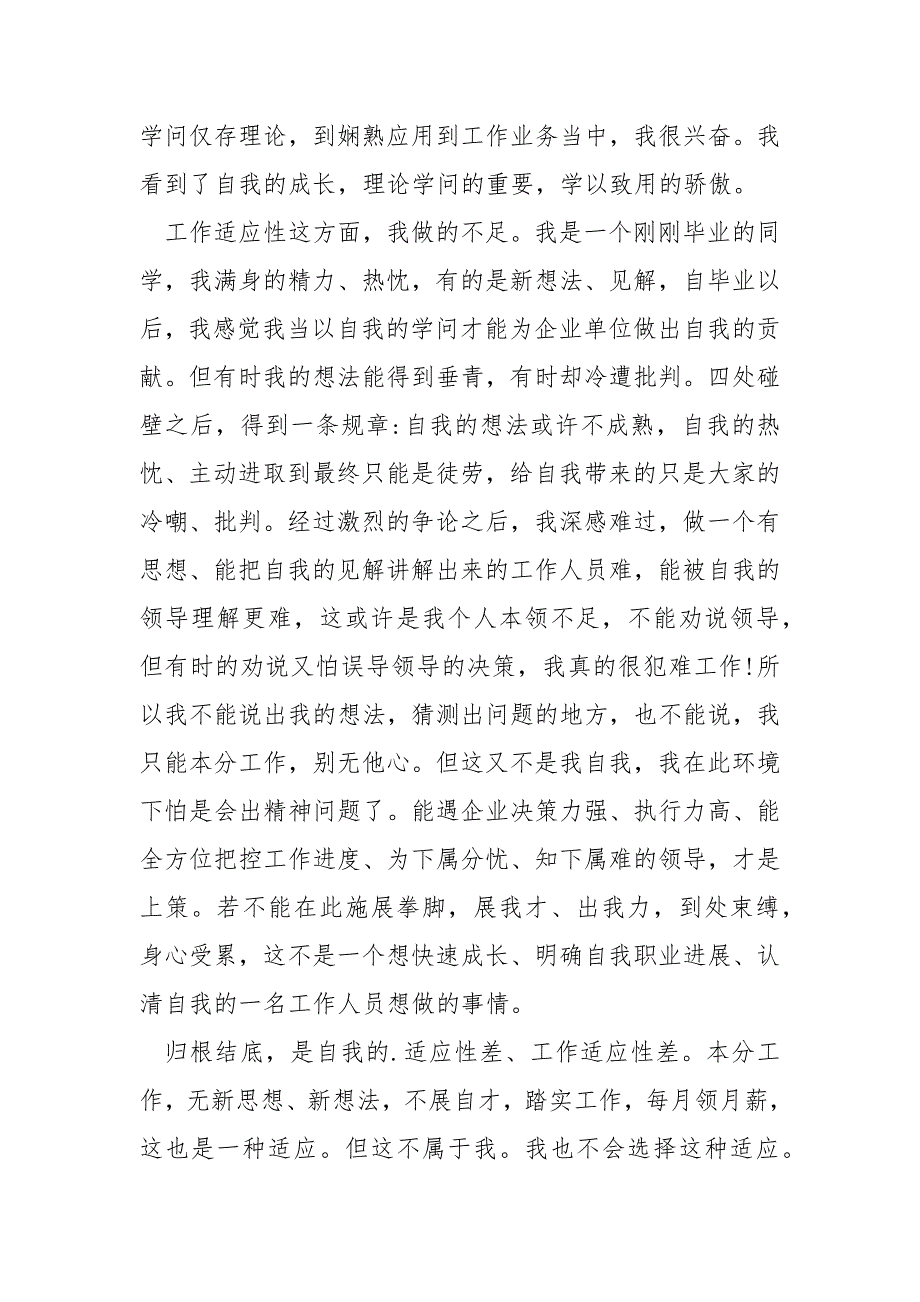 学问仅存理论，到娴熟应用到工作业务当中，我很兴奋。我
看到了自我的成长，理论学问的重要，学以致用的骄傲。
工作适应性这方面，我做的不足。我是一个刚刚毕业的同
学，我满身的精力、热忱，有的是新想法、见解，自毕业以
后，我感觉我当以自我的学问才能为企业单位做出自我的贡
献。但有时我的想法能得到垂青，有时却冷遭批判。四处碰
壁之后，得到一条规章:自我的想法或许不成熟，自我的热
忱、主动进取到最终只能是徒劳，给自我带来的只是大家的
冷嘲、批判。经过激烈的争论之后，我深感难过，做一个有
思想、能把自我的见解讲解出来的工作人员难，能被自我的
领导理解更难，这或许是我个人本领不足，不能劝说领导，
但有时的劝说又怕误导领导的决策，我真的很犯难工作!所
以我不能说出我的想法，猜测出问题的地方，也不能说，我
只能本分工作，别无他心。但这又不是我自我，我在此环境
下怕是会出精神问题了。能遇企业决策力强、执行力高、能
全方位把控工作进度、为下属分忧、知下属难的领导，才是
上策。若不能在此施展拳脚，展我才、出我力，到处束缚，
身心受累，这不是一个想快速成长、明确自我职业进展、认
清自我的一名工作人员想做的事情。
归根结底，是自我的.适应性差、工作适应性差。本分工
作，无新思想、新想法，不展自才，踏实工作，每月领月薪，
这也是一种适应。但这不属于我。我也不会选择这种适应。